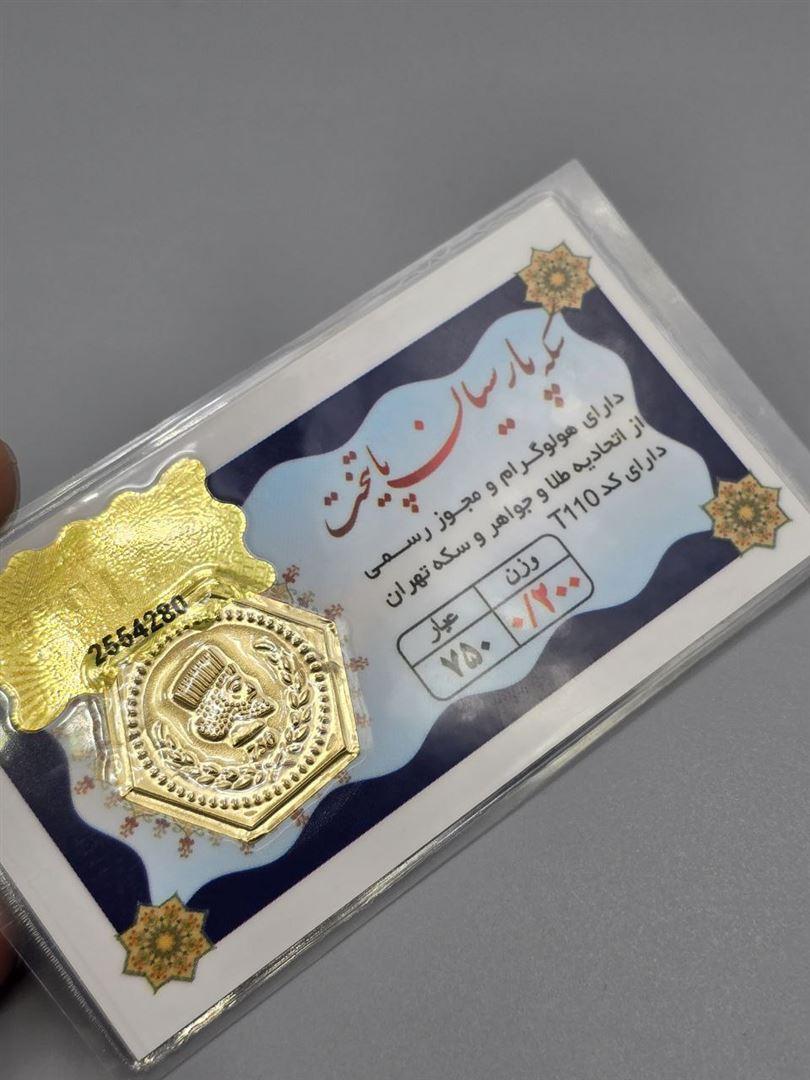 سکه پارسیان پایتخت
دارای هولوگرام و مجوز رسمی
از اتحادیه طلا و جواهر و سکه تهران
دارای کد T110
وزن عیار
۰/۲۰۰ ۷۵۰
2554280
750